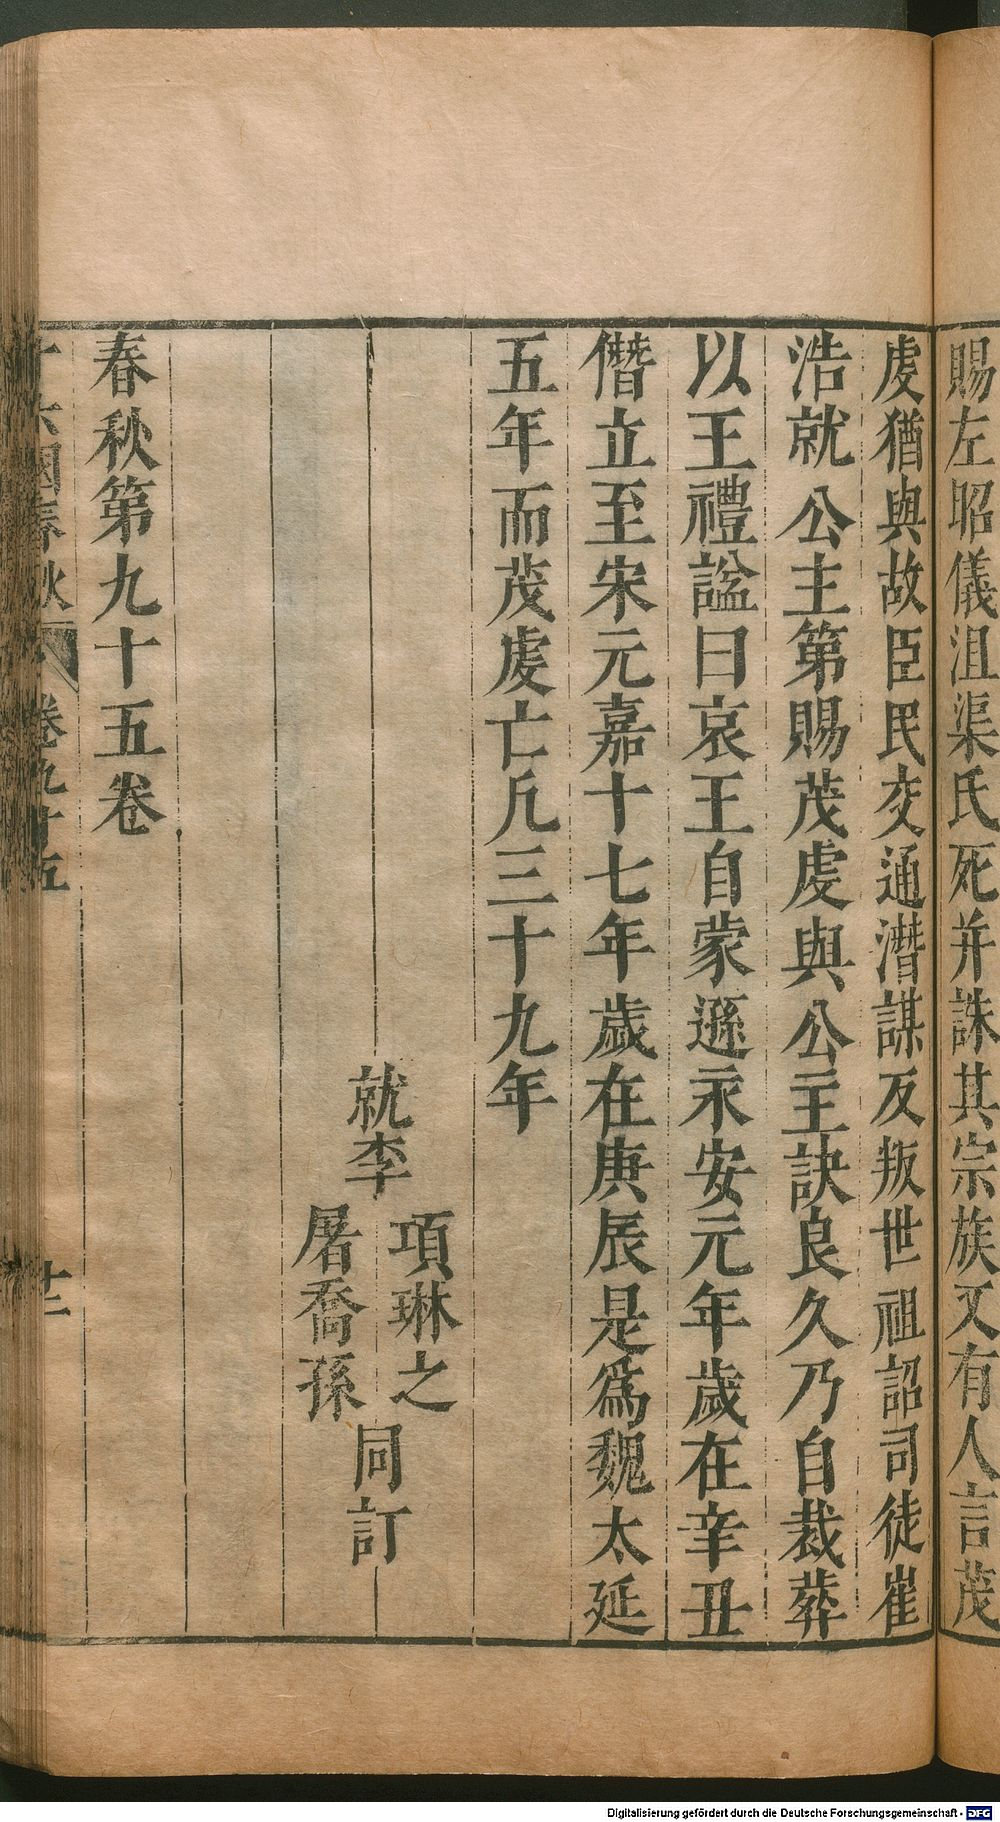 賜左昭儀沮渠氏死并誅其宗族又有人言茂
虔猶與故臣民交通潛謀反叛世祖詔司徒崔
浩就公主第賜茂虔與公主訣良久乃自裁葬
以王禮諡曰哀王自蒙遜永安元年歲在辛丑
僭立至宋元嘉十七年歲在庚辰是爲魏太延
五年而茂虔亡凡三十九年
就李
項琳之
屠喬孫
同訂
春秋第九十五卷
十六國春秋 卷九十五 十二
Digitalisierung gefördert durch die Deutsche Forschungsgemeinschaft - DFG